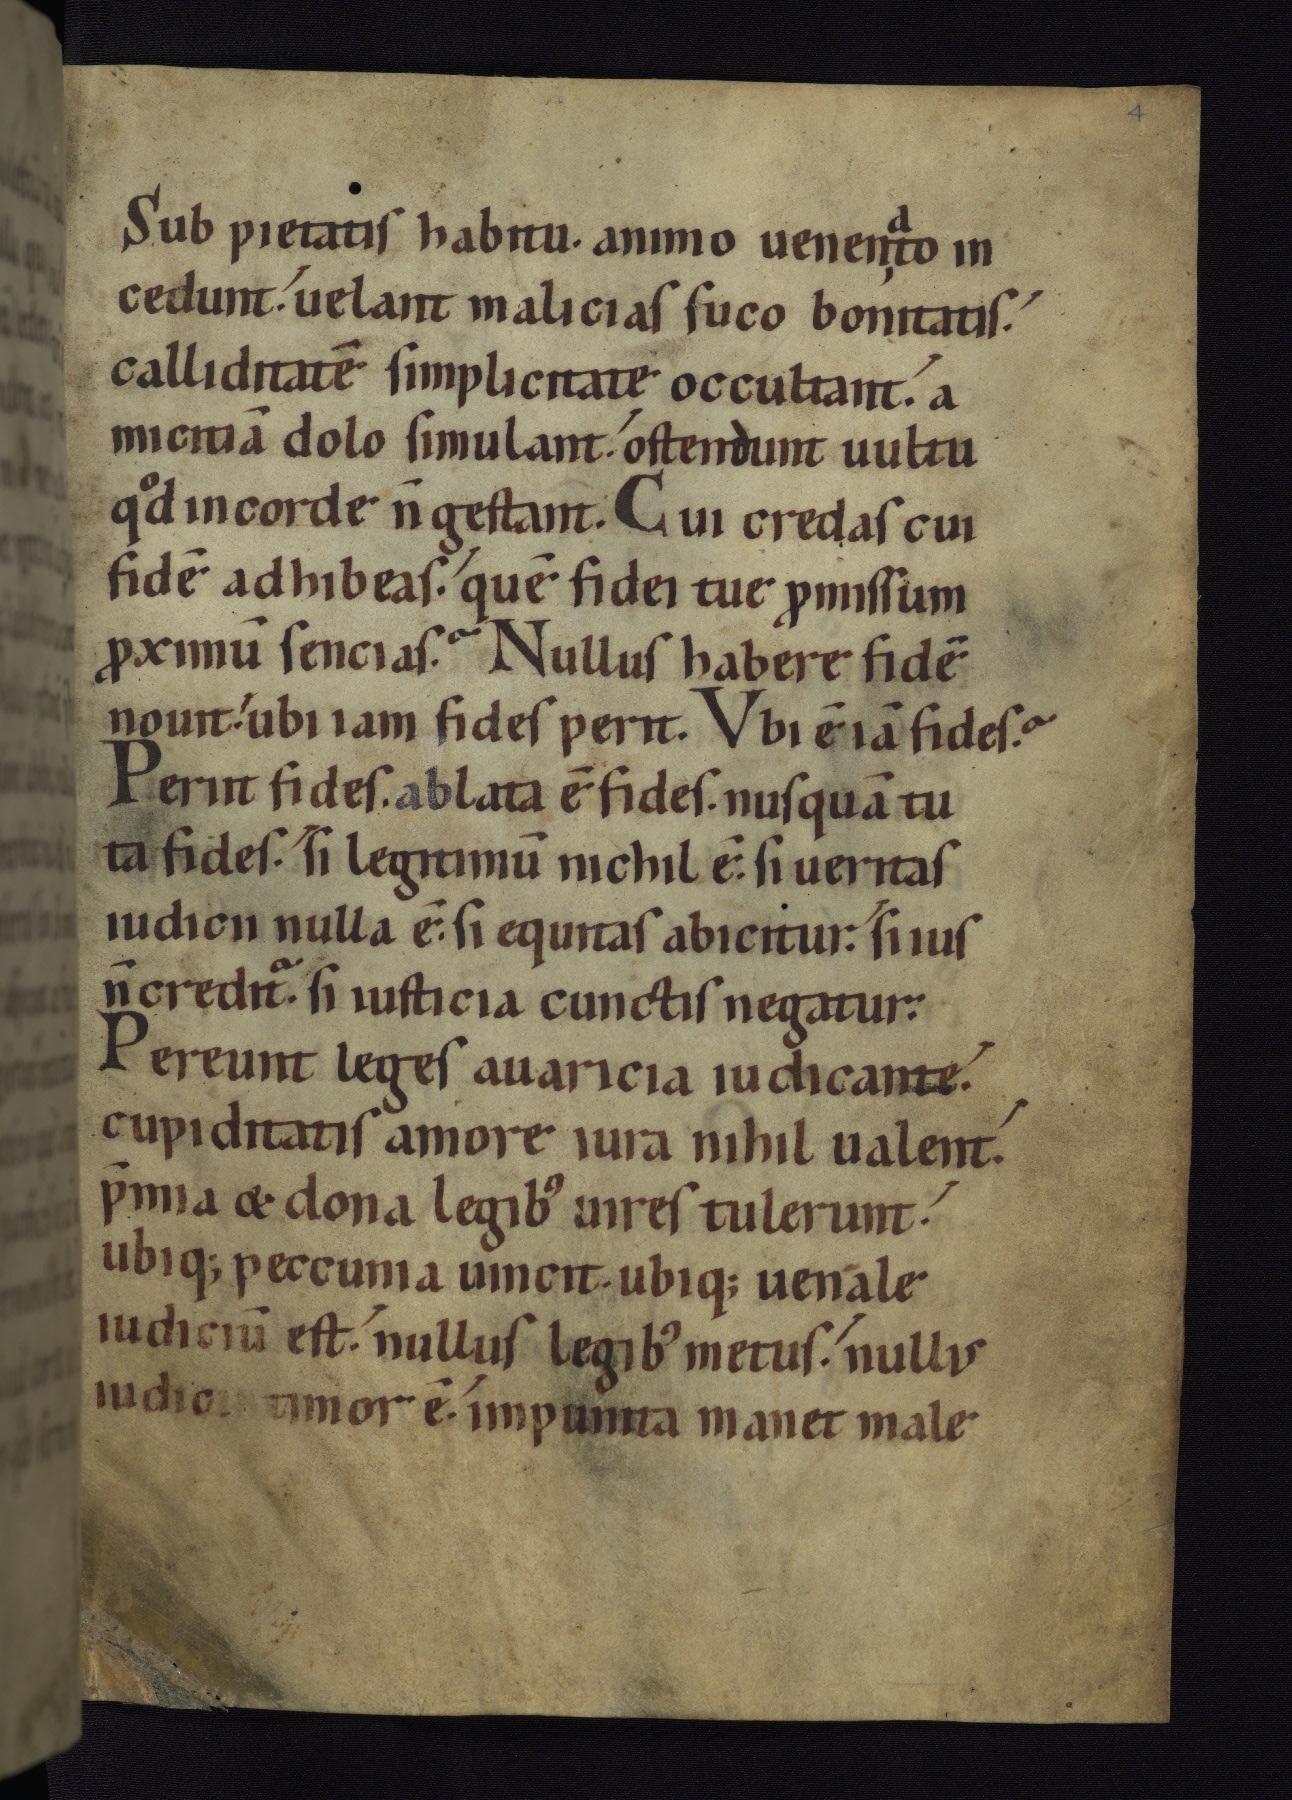 4
Sub pietatis habitu. animo uenenato in
cedunt. uelant malicias fuco bonitatis.
calliditatē simplicitate occultant. a
micitiā dolo simulant. ostendunt uultu
qͦd in corde n̄ gestant. Cui credas cui
fidē adhibeas. quē fidei tue ꝓmissum
ꝓximū sencias. Nullus habere fidē
nouit. ubi iam fides perit. Vbi ē iā fides.
Periit fides. ablata ē fides. nusquā tu
ta fides. si legitimū nichil ē. si ueritas
iudicii nulla ē. si equitas abicitur. si ius
n̄ creditᷓ. si iusticia cunctis negatur.
Pereunt leges auaricia iudicante.
cupiditatis amore iura nihil ualent.
p̄mia & dona legibꝰ uires tulerunt.
ubiq; peccunia uincit. ubiq; uenale
iudiciū est. nullus legibꝰ metus. nullus
timor ē. impunita manet male